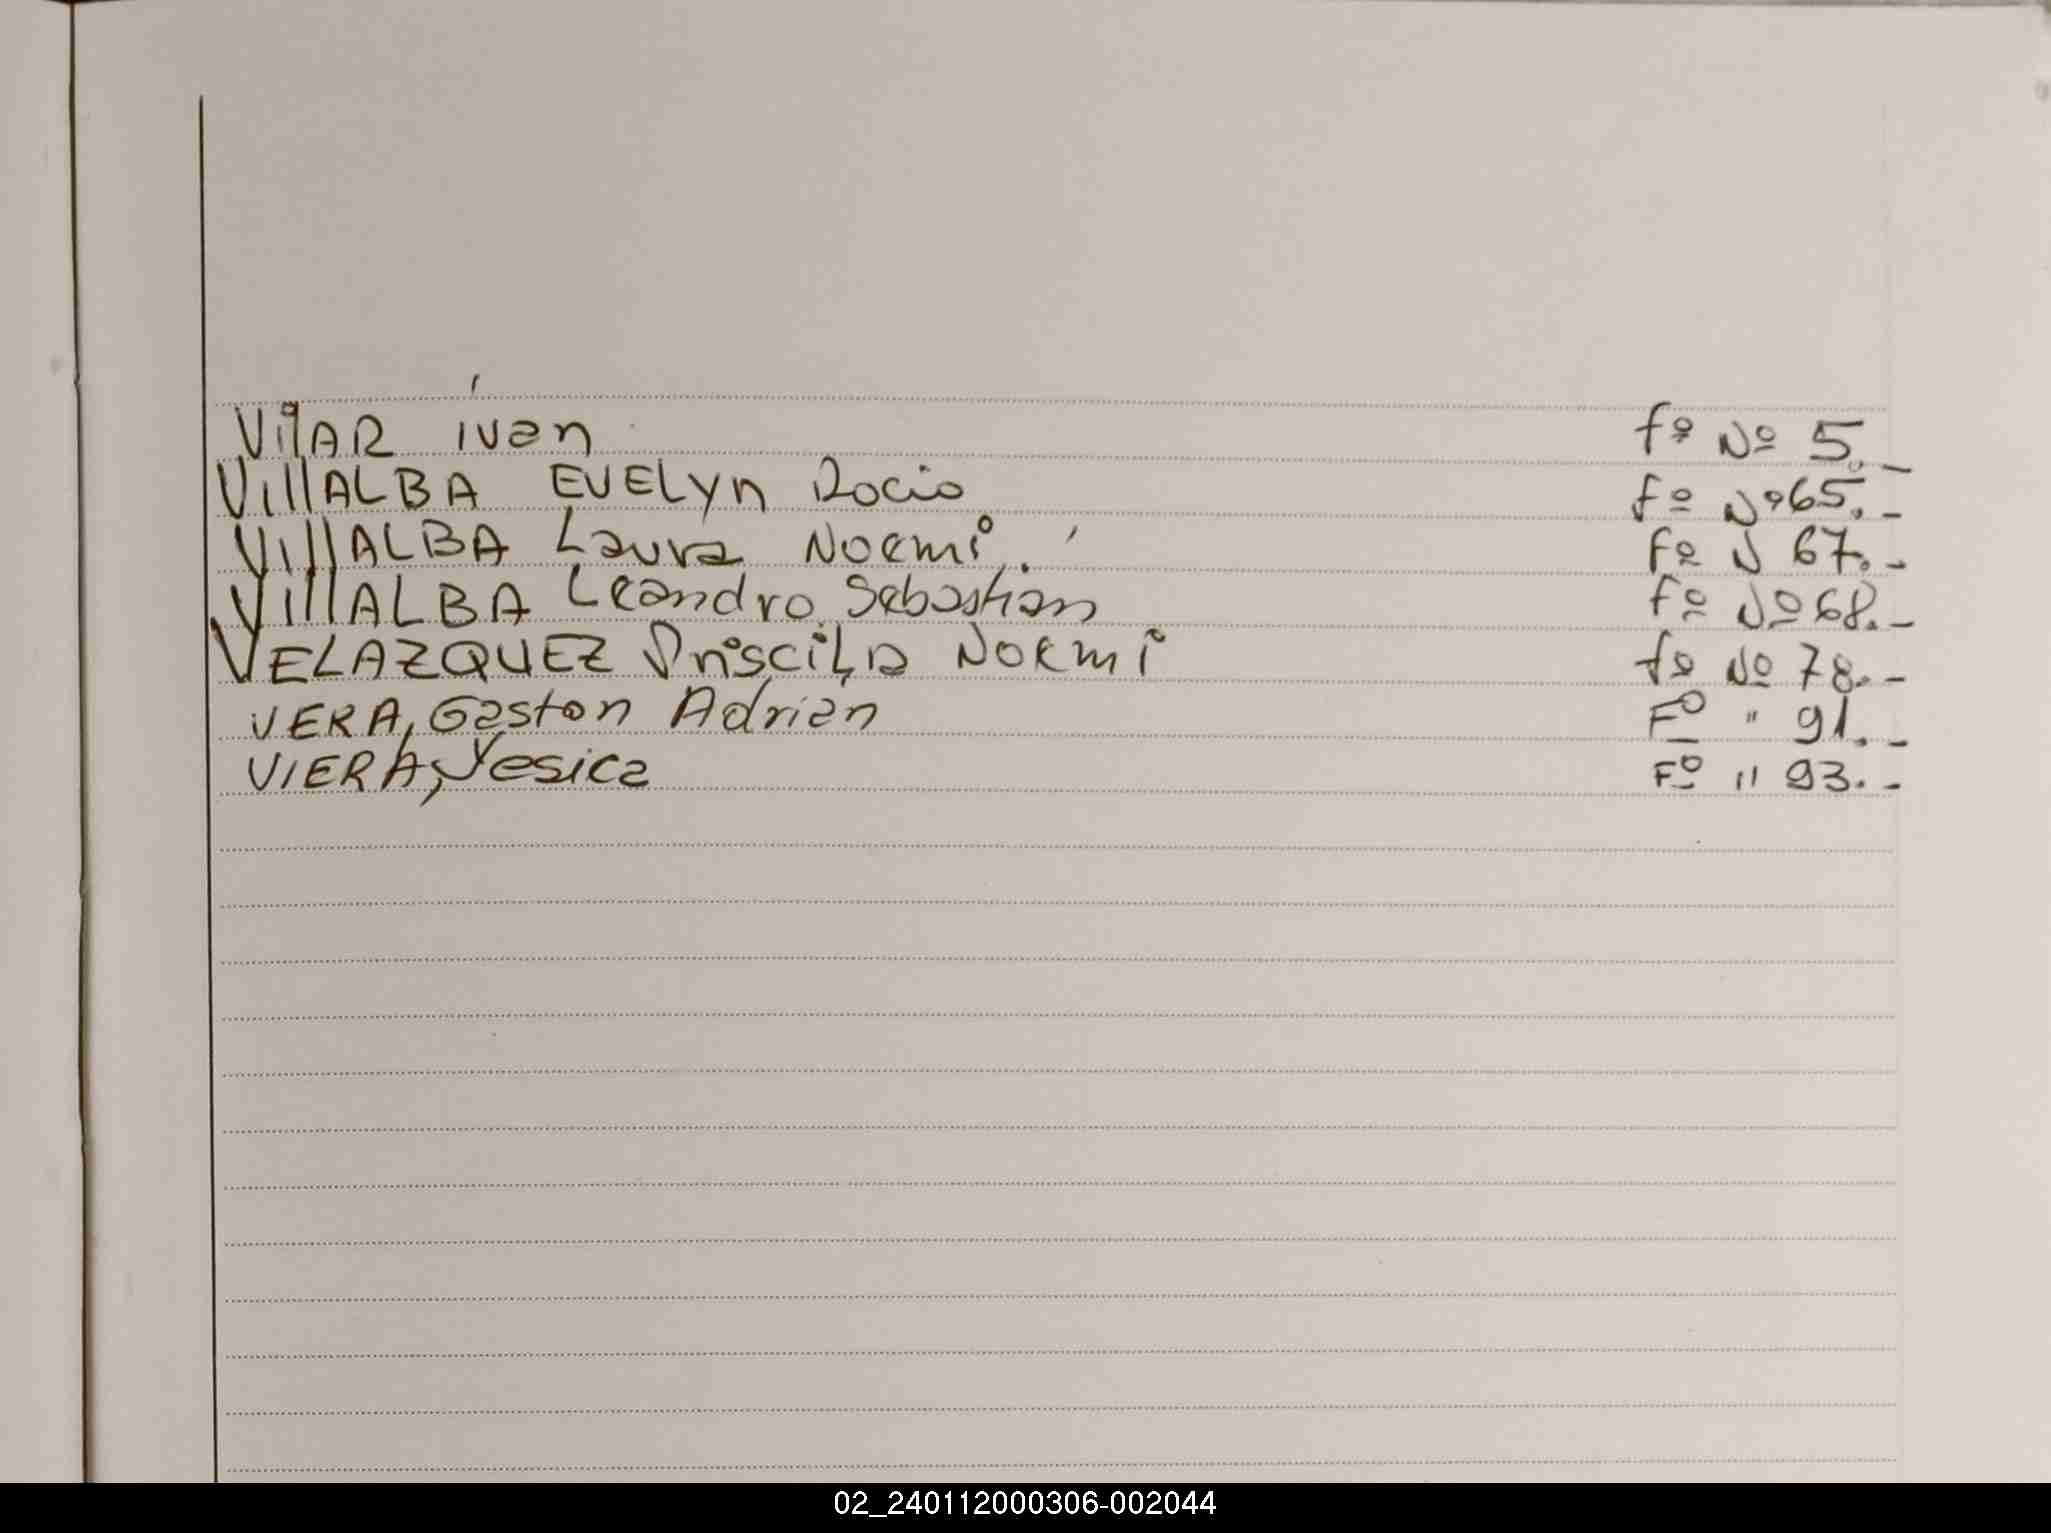 VilAR Ivan fº Nº 5.-
VillALBA EVELyn Rocio fº Nº 65.-
VillALBA Laura Noemi fº N 67.-
VillALBA Leandro Sebastian fº Nº 68.-
VELAZQUEZ PriscilA Noemi fº Nº 78.-
VERA, Gaston Adrian Fº " 91.-
VIERA, Yesica Fº " 93.-
02_240112000306-002044